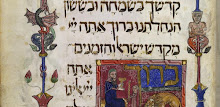 קדשך בשמחה ובששון
הנחלתנו ברוך אתה יי
מקדש ישראל והזמנים
אתה
יי